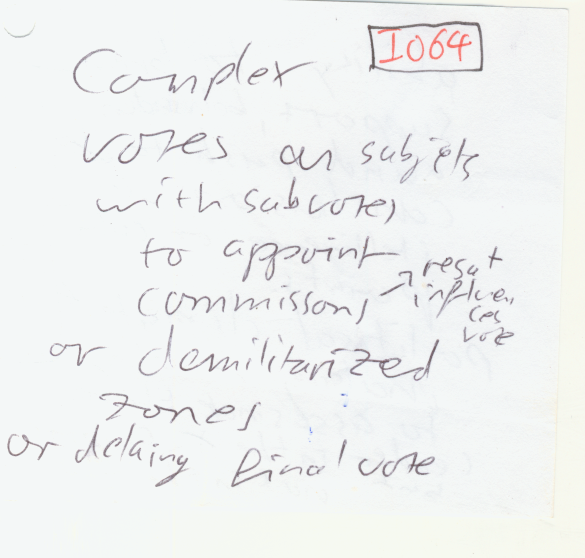 I064
Complex
votes on subjets
with subvotes
to appoint
commissons → resut
influen
ces
vote
or demilitarized
zones
or delaing final vote